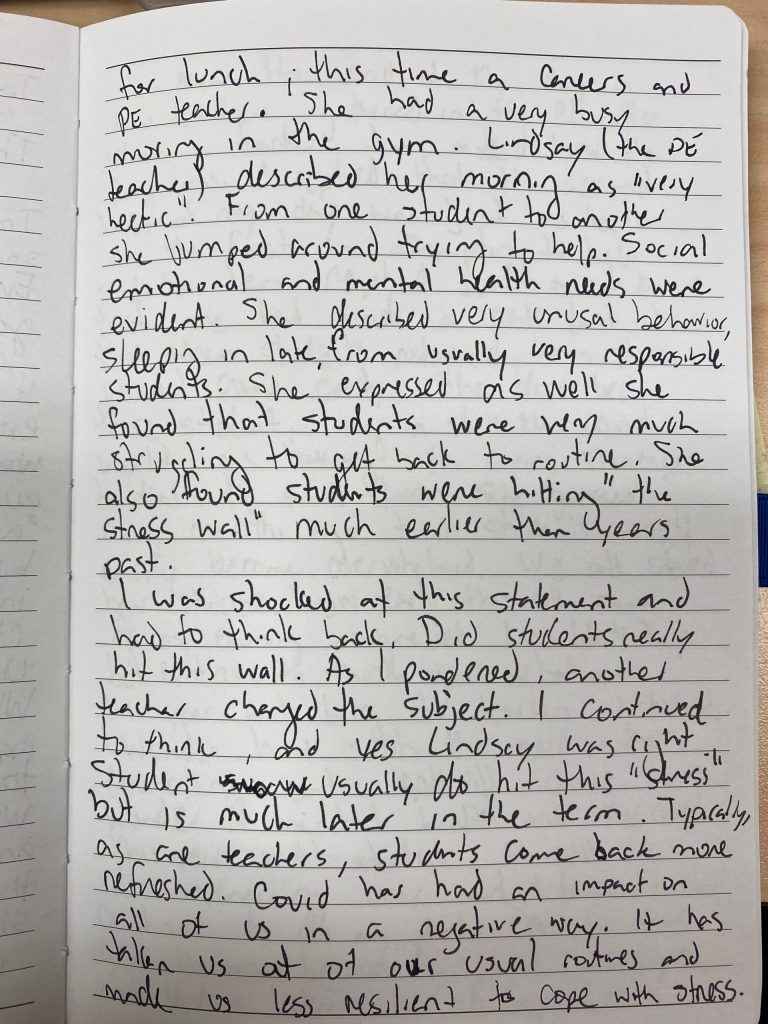 for lunch ; this time a Careers and
PE teacher. She had a very busy
moring in the gym. Lindsay (the PE
teacher) described her morning as "very
hectic". From one student to another
she jumped around trying to help. Social
emotional and mental health needs were
evident. She described very unusal behavior,
sleepig in late, from usually very responsible
students. She expressed as well she
found that students were very much
struggling to get back to routine. She
also found students were hitting "the
stress wall" much earlier then years
past.
I was shocked at this statement and
had to think back. Did students really
hit this wall. As I pondered, another
teacher changed the subject. I continued
to think, and yes Lindsay was right.
Student usually do hit this "stress"
but is much later in the term. Typically,
as are teachers, students come back more
refreshed. Covid has had an impact on
all of us in a negative way. It has
taken us ot of our usual routines and
made us less resilient to cope with stress.